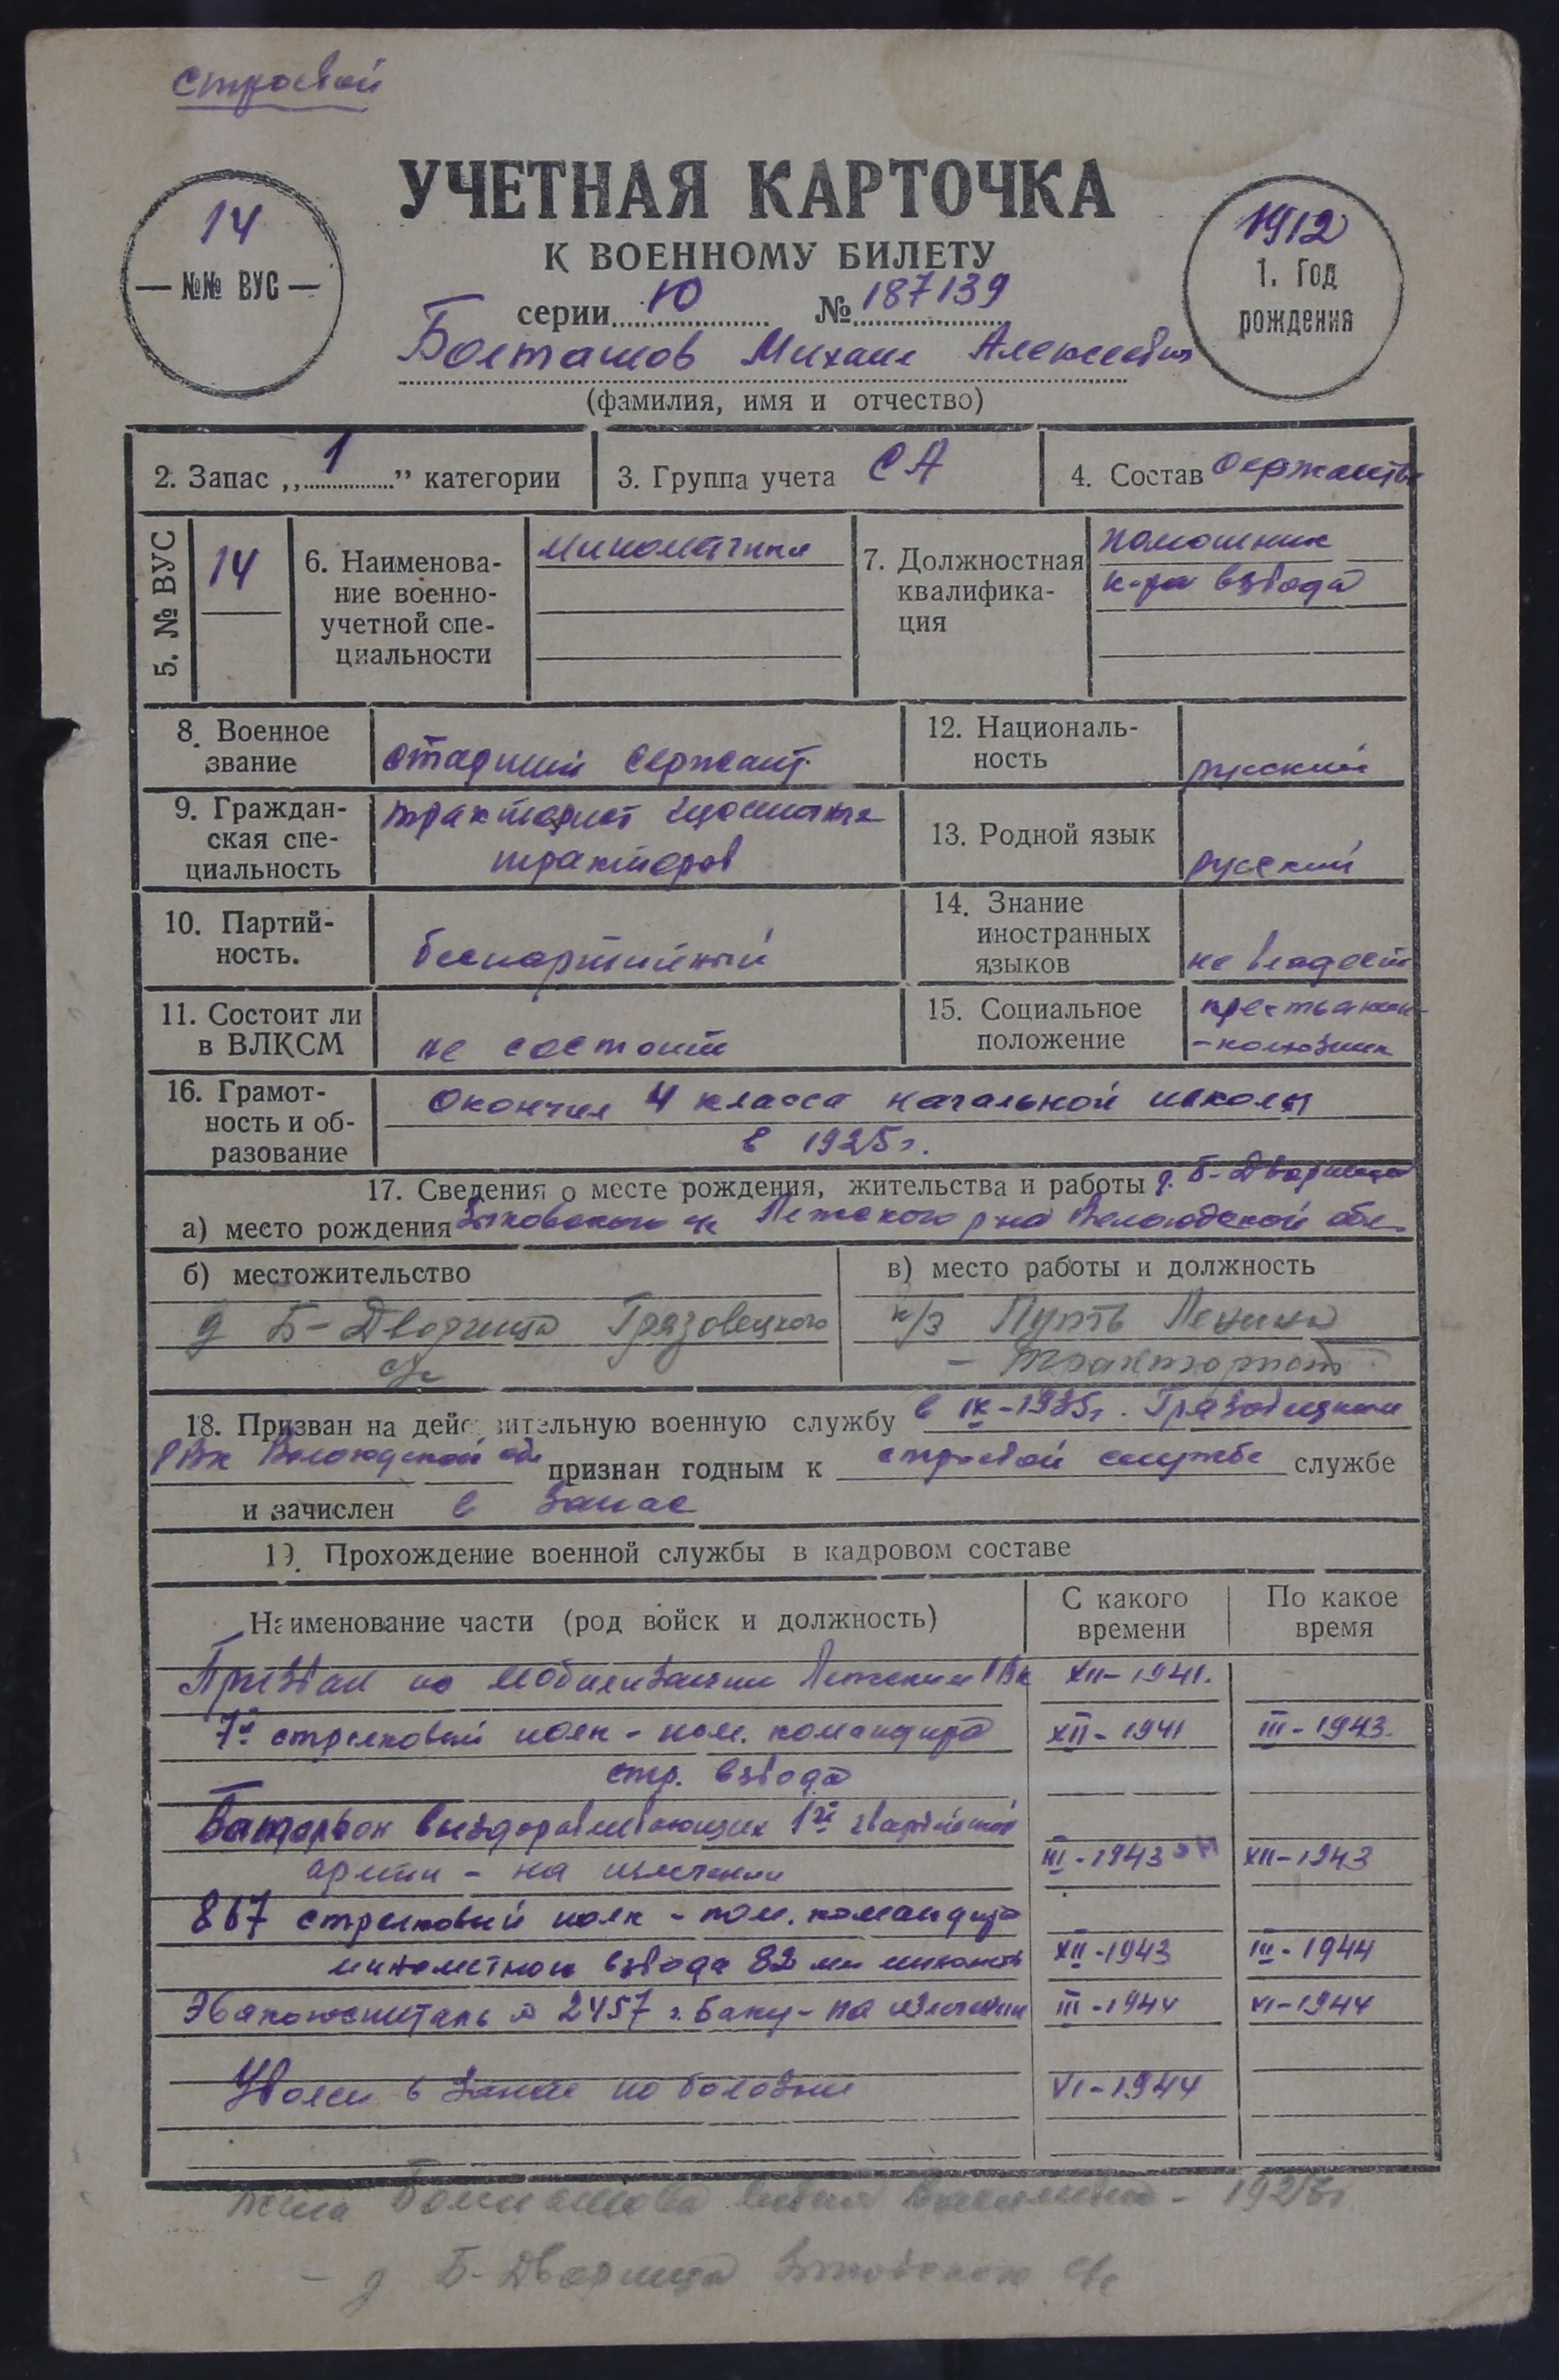 строевой
УЧЕТНАЯ КАРТОЧКА
К ВОЕННОМУ БИЛЕТУ
14
№№ ВУС
1912
1. Год
рождения
серии Ю № 187139
Болташов Михаил Алексеевич
(фамилия, имя и отчество)
2. Запас „1” категории
3. Группа учета СА
4. Состав сержанты
5. № ВУС
14
6. Наименова-
ние военно-
учетной спе-
циальности
минометчики
7. Должностная
квалифика-
ция
помошник
к-ра взвода
8. Военное
звание
стадший сержант
12. Националь-
ность
русский
9. Граждан-
ская спе-
циальность
тракторист
тракторов
13. Родной язык
русский
10. Партий-
ность.
беспартийный
14. Знание
иностранных
языков
не владеет
11. Состоит ли
в ВЛКСМ
не состоит
15. Социальное
положение
крестьянин-
-колхозник
16. Грамот-
ность и об-
разование
Окончил 4 класса начальной школы
в 1925г.
17. Сведения о месте рождения, жительства и работы д. Б-Дворища
а) место рождения Зыковского с/с Лежского р-на Вологодской обл.
б) местожительство
д Б-Дворища Грязовецкого
в) место работы и должность
к/з Путь Ленина
- тракторист
18. Призван на действительную военную службу в IX-1935г. Грязовецким
РВК Вологодской обл признан годным к строевой службе службе
и зачислен в запас
19. Прохождение военной службы в кадровом составе
Наименование части (род войск и должность)
С какого
времени
По какое
время
Призван по мобилизации Лежским РВК XII-1941.
7й стрелковый полк - пом. командира XII-1941 III-1943.
стр. взвода
Батальон выздоравливающих 1й гвардейской
армии - на излечении III-1943 XII-1943
867 стрелковый полк - пом. командира
минометного взвода 82 мм минометы XII-1943 III-1944
Эвакогоспиталь № 2457 г. Баку - на излечении III-1944 VI-1944
Уволен в запас по болезни VI-1944
жена Болташова - 1928г
- д Б-Дворища Зыковского с/с